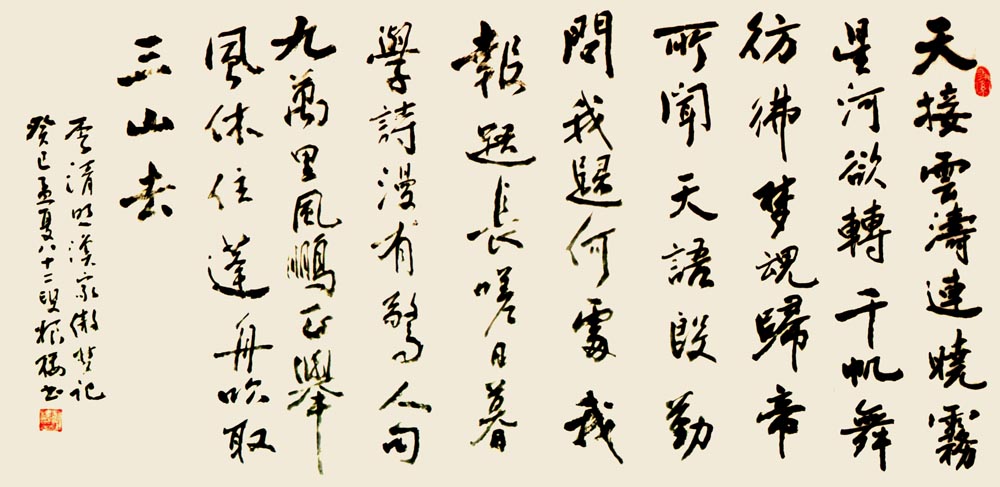 天接雲濤連曉霧
星河欲轉千帆舞
彷彿梦魂歸帝
所聞天語殷勤
問我歸何處我
報路長嗟日暮
學詩漫有驚人句
九萬里風鵬正舉
風休住蓬舟吹取
三山去
李清照漁家傲梦记
癸巳孟夏八十二叟振书